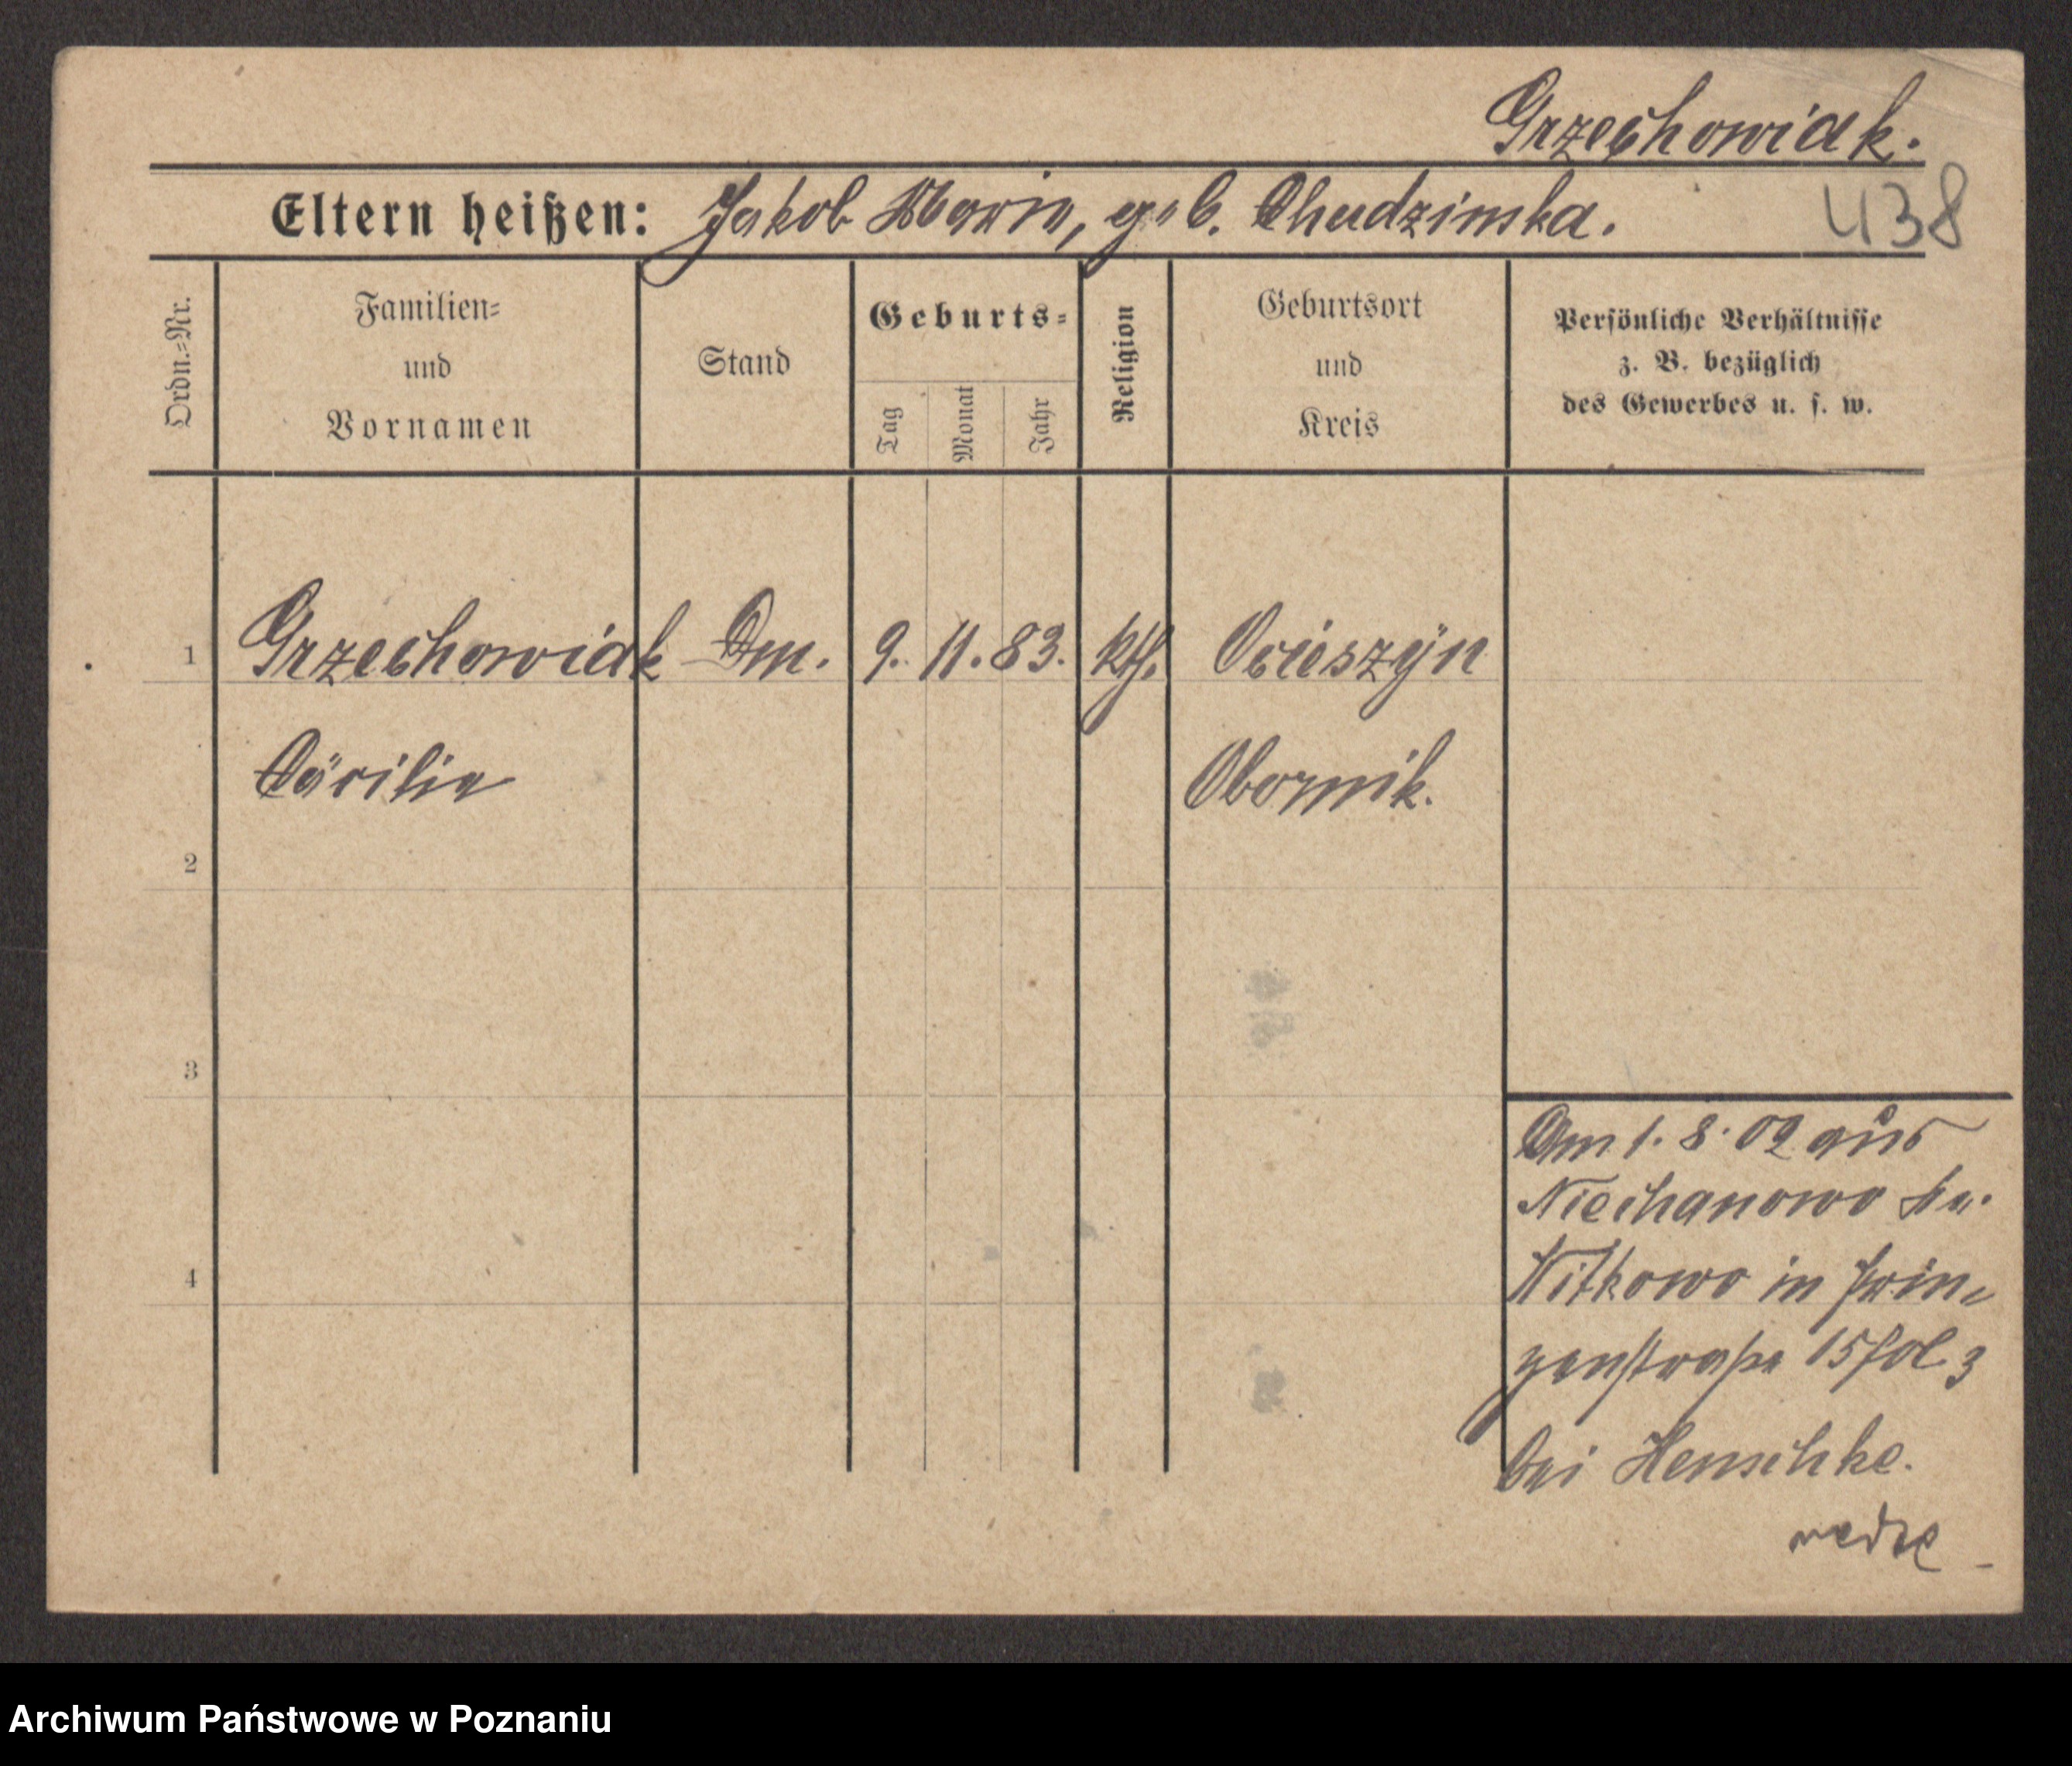 Grzechowiak.
Eltern heißen: Jakob Maria, geb. Chudzinska.
438
Ordn.=Nr.
Familien=
und
Vornamen
Stand
Geburts=
Tag
Monat
Jahr
Religion
Geburtsort
und
Kreis
Persönliche Verhältnisse
z. B. bezüglich
des Gewerbes u. s. w.
1 Grzechowiak Dm. 9. 11. 83. kth. Ocieszyn
Cäcilia Obornik.
2
3
4
Am 1. 8. 02 aus
Niechanowo Kr.
Witkowo in Prin=
zenstraße 15 Hol. 3
bei Henschke.
Archiwum Państwowe w Poznaniu